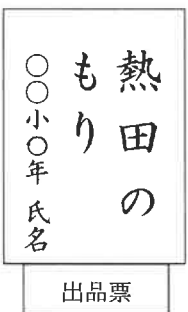 熱田の
もり
○○小○年 氏名
出品票